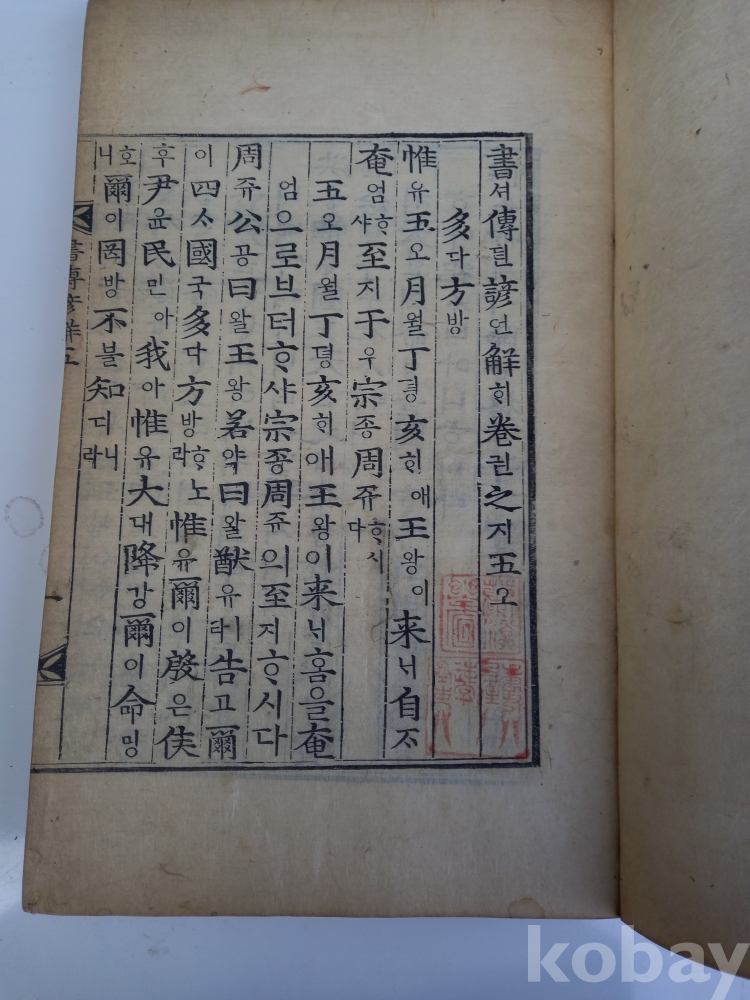 書셔傳뎐諺언解ᄒᆡ卷권之지五오
多다方방
惟유五오月월丁뎡亥ᄒᆡ애王왕이来ᄂᆡ自ᄌᆞ
奄엄ᄒᆞ샤至지于우宗종周쥬ᄒᆞ시다
五오月월丁뎡亥ᄒᆡ애王왕이来ᄂᆡ홈을奄
엄으로브터ᄒᆞ샤宗종周쥬의至지ᄒᆞ시다
周쥬公공曰왈王왕若약曰왈猷유ㅣ라告고爾
이四ᄉᆞ國국多다方방ᄒᆞ노라惟유爾이殷은侯
후尹윤民민아我아惟유大대降강爾이命밍
호니爾이罔방不불知디니라
書傳諺解五
一
kobay